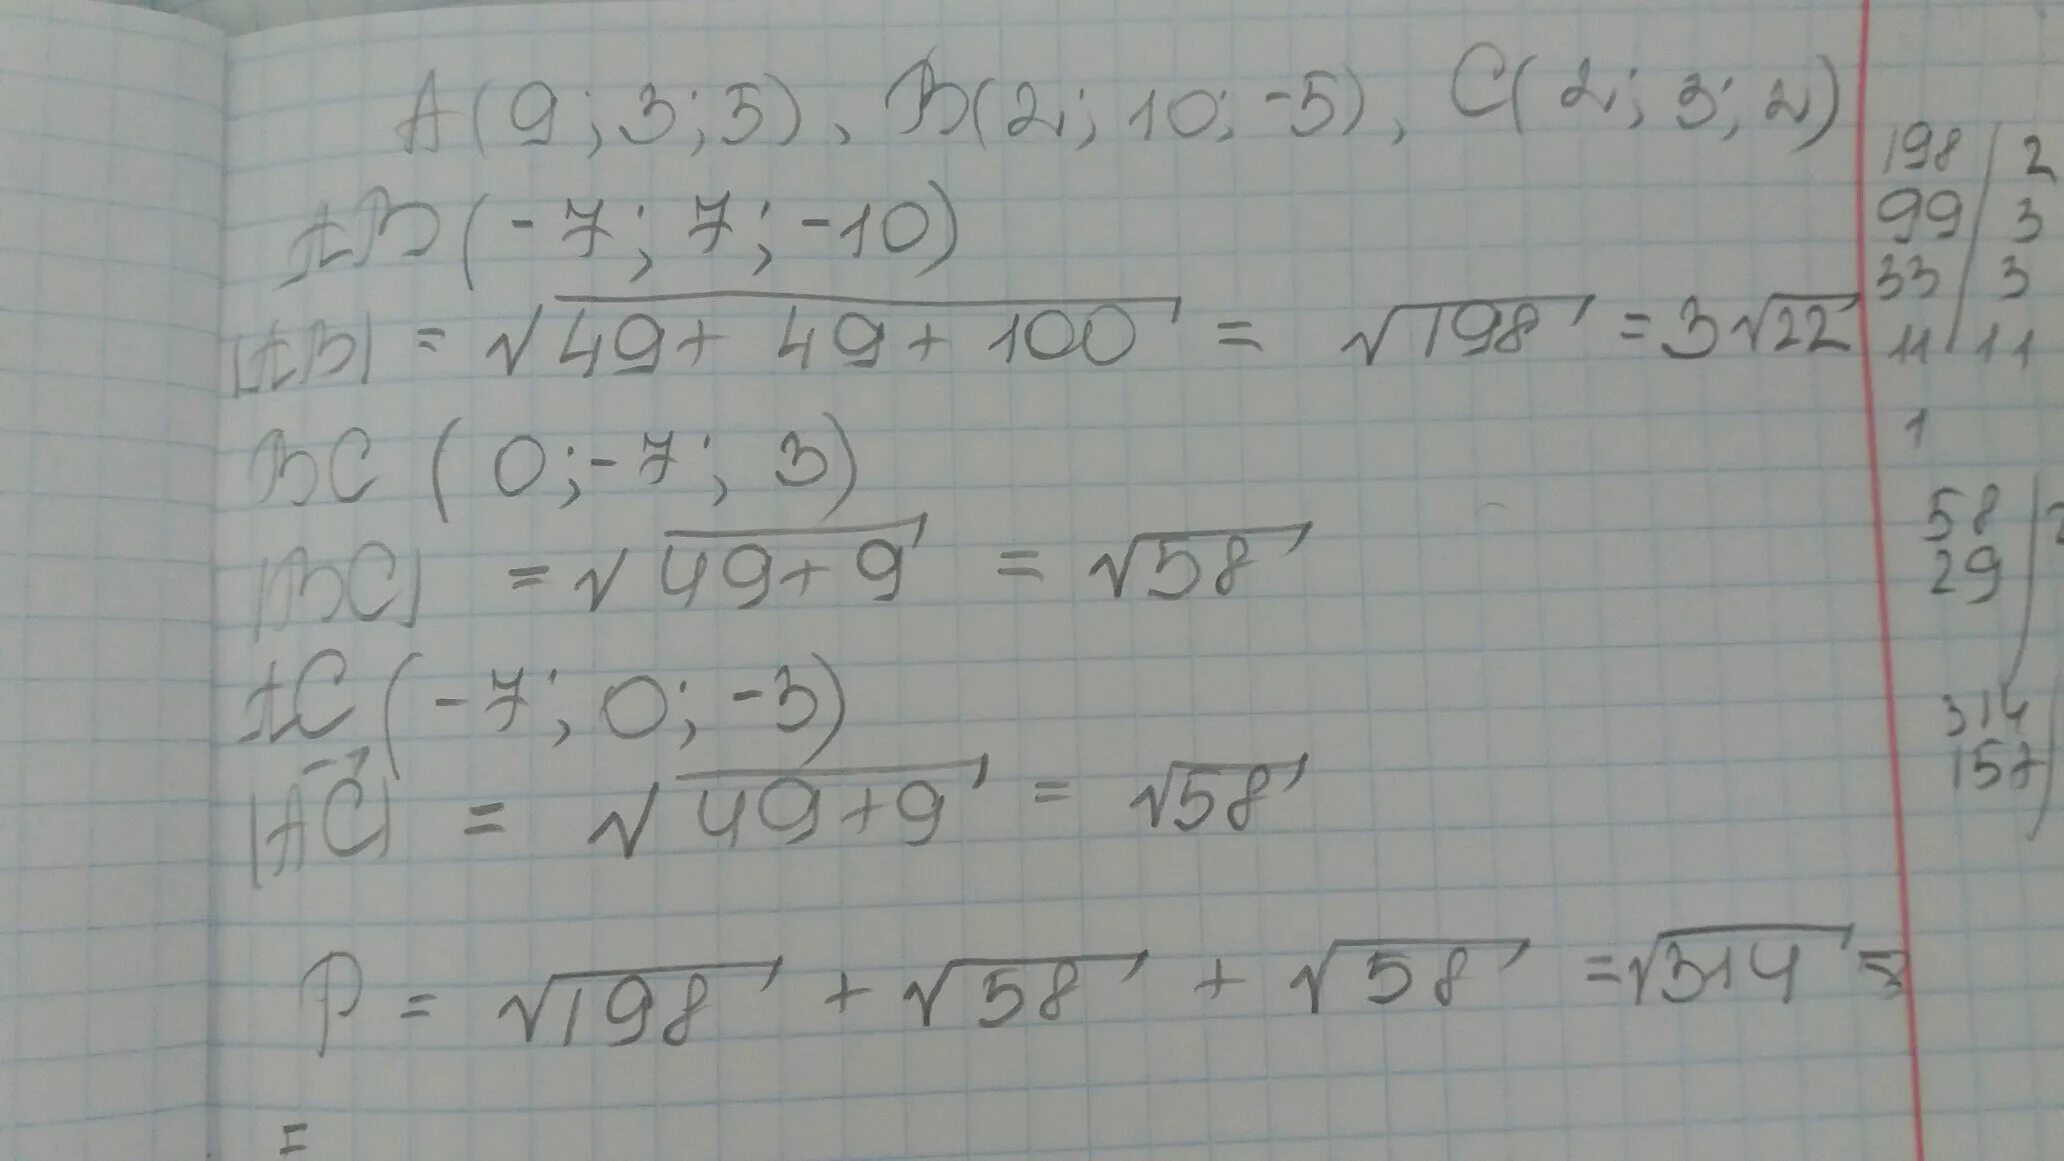 A(9; 3; 5), B(2; 10; -5), C(2; 3; 2)
AB(-7; 7; -10)
|AB| = √49+ 49+ 100 = √198 = 3√22
BC (0; -7; 3)
|BC| = √49+9 = √58
AC(-7; 0; -3)
|AC| = √49+9 = √58
P = √198 + √58 + √58 = √314 =
=
198 | 2
99 | 3
33 | 3
11 | 11
1
58 | 2
29
314
157